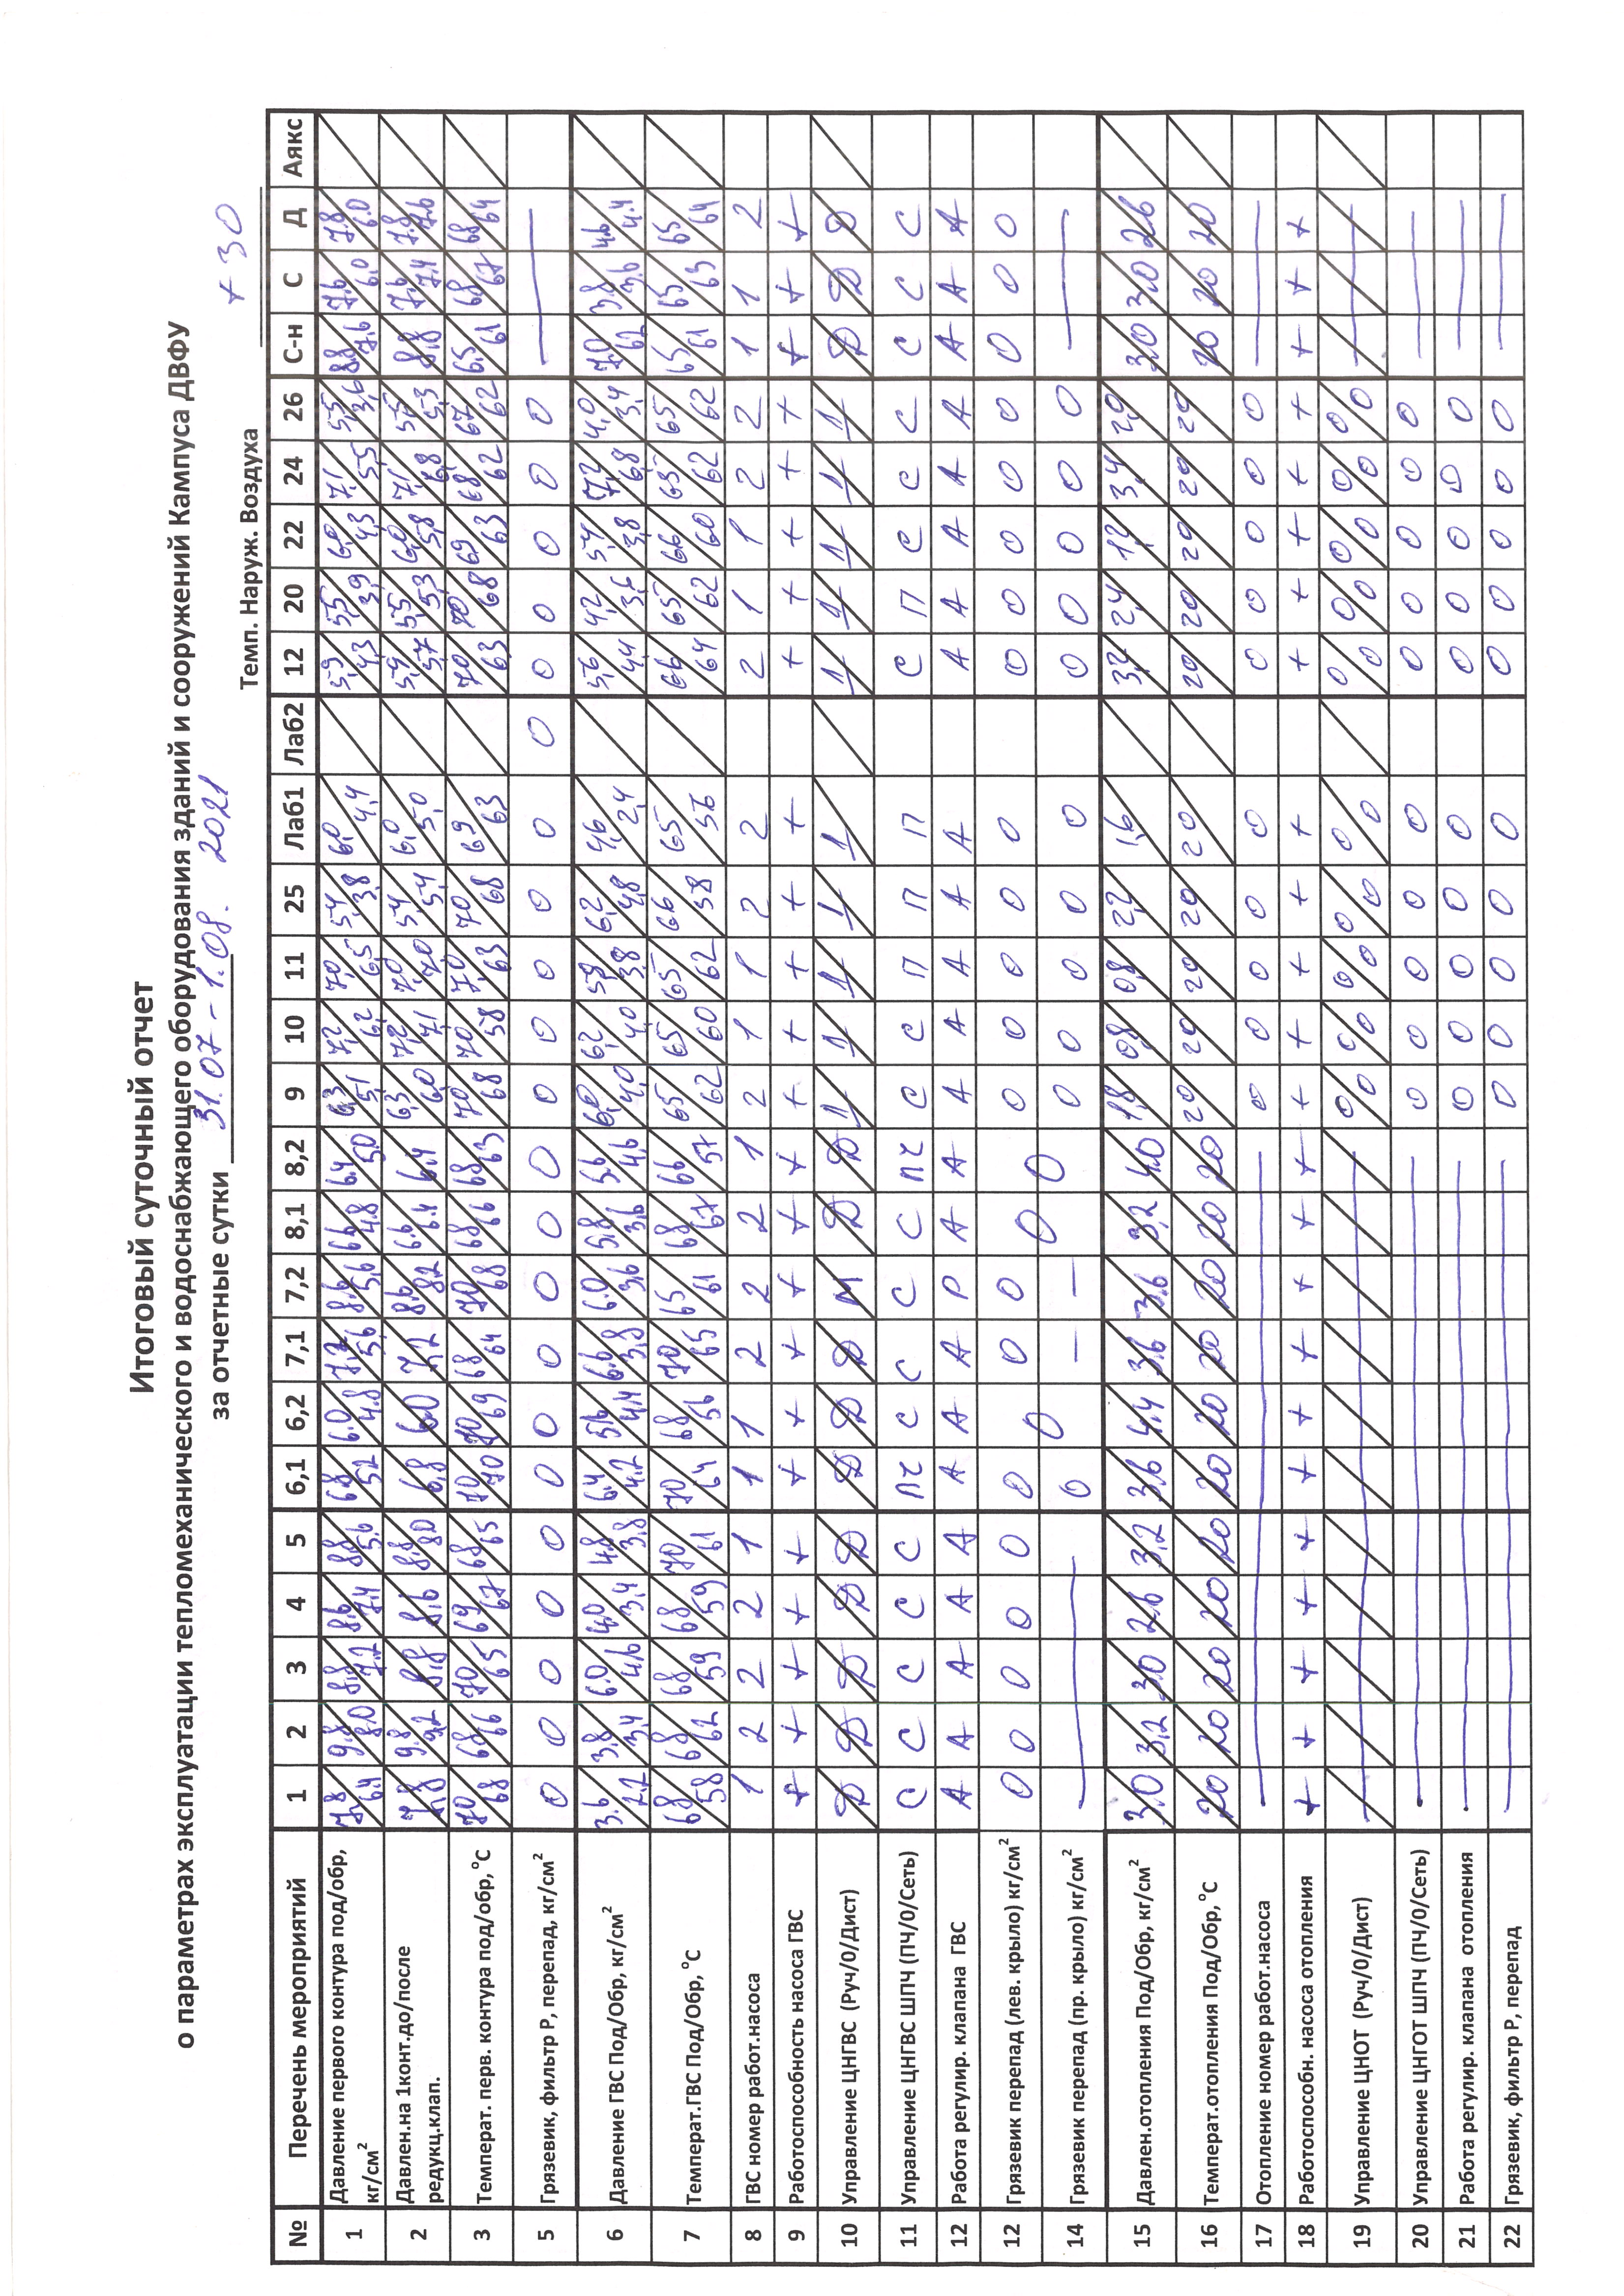 Итоговый суточный отчет
о параметрах эксплуатации тепломеханического и водоснабжающего оборудования зданий и сооружений Кампуса ДВФУ
за отчетные сутки 31.07 - 1.08. 2021
Темп. Наруж. Воздуха +30
№ Перечень мероприятий 1 2 3 4 5 6,1 6,2 7,1 7,2 8,1 8,2 9 10 11 25 Лаб1 Лаб2 12 20 22 24 26 С-н С Д Аякс
1 Давление первого контура под/обр, кг/см² 7,8/6,4 9.8/8.0 8,8/7.2 8,6/7,4 8,8/5.6 6,8/5,2 6.0/4.8 7,2/5,6 8,6/5,6 6,6/4.8 6.4/5.0 6,3/5,1 7,2/6,2 7,0/6,5 5,4/3,8 6,0/4,4 5,9/4,3 5,5/3,9 6,0/4,3 7,1/5,5 5,5/3,6 8.8/7,6 7,6/6,0 7.8/6.0
2 Давлен.на 1конт.до/после редукц.клап. 7,8 9.8/9,2 8,8 8,6 8,8/8,0 6,8 6,0 7,2 8,6/8,2 6.6/6.4 6,4 6,3/6,0 7,2/7,1 7,0/7,0 5,4/5,4 6,0/5,0 5,9/5,7 5,5/5,3 6,0/5,8 7,1/6,8 5,5/5,3 8,8 7,6/7,4 7.8/7.6
3 Температ. перв. контура под/обр,°С 70/68 68/66 70/65 69/67 68/65 70/70 70/69 68/64 70/68 68/66 68/63 70/68 70/58 70/63 70/68 69/63 70/63 70/68 69/63 68/62 67/62 65/61 68/67 68/64
5 Грязевик, фильтр Р, перепад, кг/см² 0 0 0 0 0 0 0 0 0 0 0 0 0 0 0 0 0 0 0 0 0 0 —
6 Давление ГВС Под/Обр, кг/см² 3.6/2.2 3,8/3,4 6.0/4.6 4.0/3,4 4.8/3,8 6.4/4.2 5,6/4,4 6.6/3,8 6.0/3,6 5,8/3,6 5.6/4,6 6,0/4,0 6,2/4,0 5,8/3,8 6,2/4,8 4,6/2,4 5,6/4,4 4,2/3,6 5,4/3,8 7,2/6,8 4,0/3,4 7.0/6,2 3,8/3.6 4.6/4.4
7 Температ.ГВС Под/Обр, °С 68/58 68/62 68/59 68/59 70/61 70/64 68/56 70/65 65/61 68/67 66/57 65/62 65/60 65/62 66/58 65/56 66/64 65/62 66/60 65/62 65/62 65/61 65/63 65/64
8 ГВС номер работ.насоса 1 2 2 2 1 1 1 2 2 2 1 2 1 1 2 2 2 1 1 2 2 1 1 2
9 Работоспособность насоса ГВС + + + + + + + + + + + + + + + + + + + + + + + +
10 Управление ЦНГВС (Руч/0/Дист) Д Д Д Д Д Д Д Д М Д Д 1 1 1 1 1 1 1 1 1 1 Д Д Д
11 Управление ЦНГВС ШПЧ (ПЧ/0/Сеть) С С С С С ПЧ С С С С ПЧ С С П П П С П С С С С С С
12 Работа регулир. клапана ГВС А А А А А А А А Р А А А А А А А А А А А А А А А
12 Грязевик перепад (лев. крыло) кг/см² 0 0 0 0 0 0 0 0 0 0 0 0 0 0 0 0 0 0 0 0 0 0 0 0
14 Грязевик перепад (пр. крыло) кг/см² — 0 — — 0 0 0 0 0 0 0 0 0 0 —
15 Давлен.отопления Под/Обр, кг/см² 3.0 3,2 3.0 2.6 3,2 3,6 4.4 3,6 3,6 3,2 4.0 1,8 0,8 0,8 2,2 1,6 3,2 2,4 1,2 3,4 2,0 3,0 3,0 2,6
16 Температ.отопления Под/Обр,°С 20 20 20 20 20 20 20 20 20 20 20 20 20 20 20 20 20 20 20 20 20 20 20 20
17 Отопление номер работ.насоса — 0 0 0 0 0 0 0 0 0 0 —
18 Работоспособн. насоса отопления + + + + + + + + + + + + + + + + + + + + + + + +
19 Управление ЦНОТ (Руч/0/Дист) — 0/0 0/0 0/0 0/0 0/0 0/0 0/0 0/0 0/0 0/0 —
20 Управление ЦНГОТ ШПЧ (ПЧ/0/Сеть) — 0 0 0 0 0 0 0 0 0 0 —
21 Работа регулир. клапана отопления — 0 0 0 0 0 0 0 0 0 0 —
22 Грязевик, фильтр Р, перепад — 0 0 0 0 0 0 0 0 0 0 —